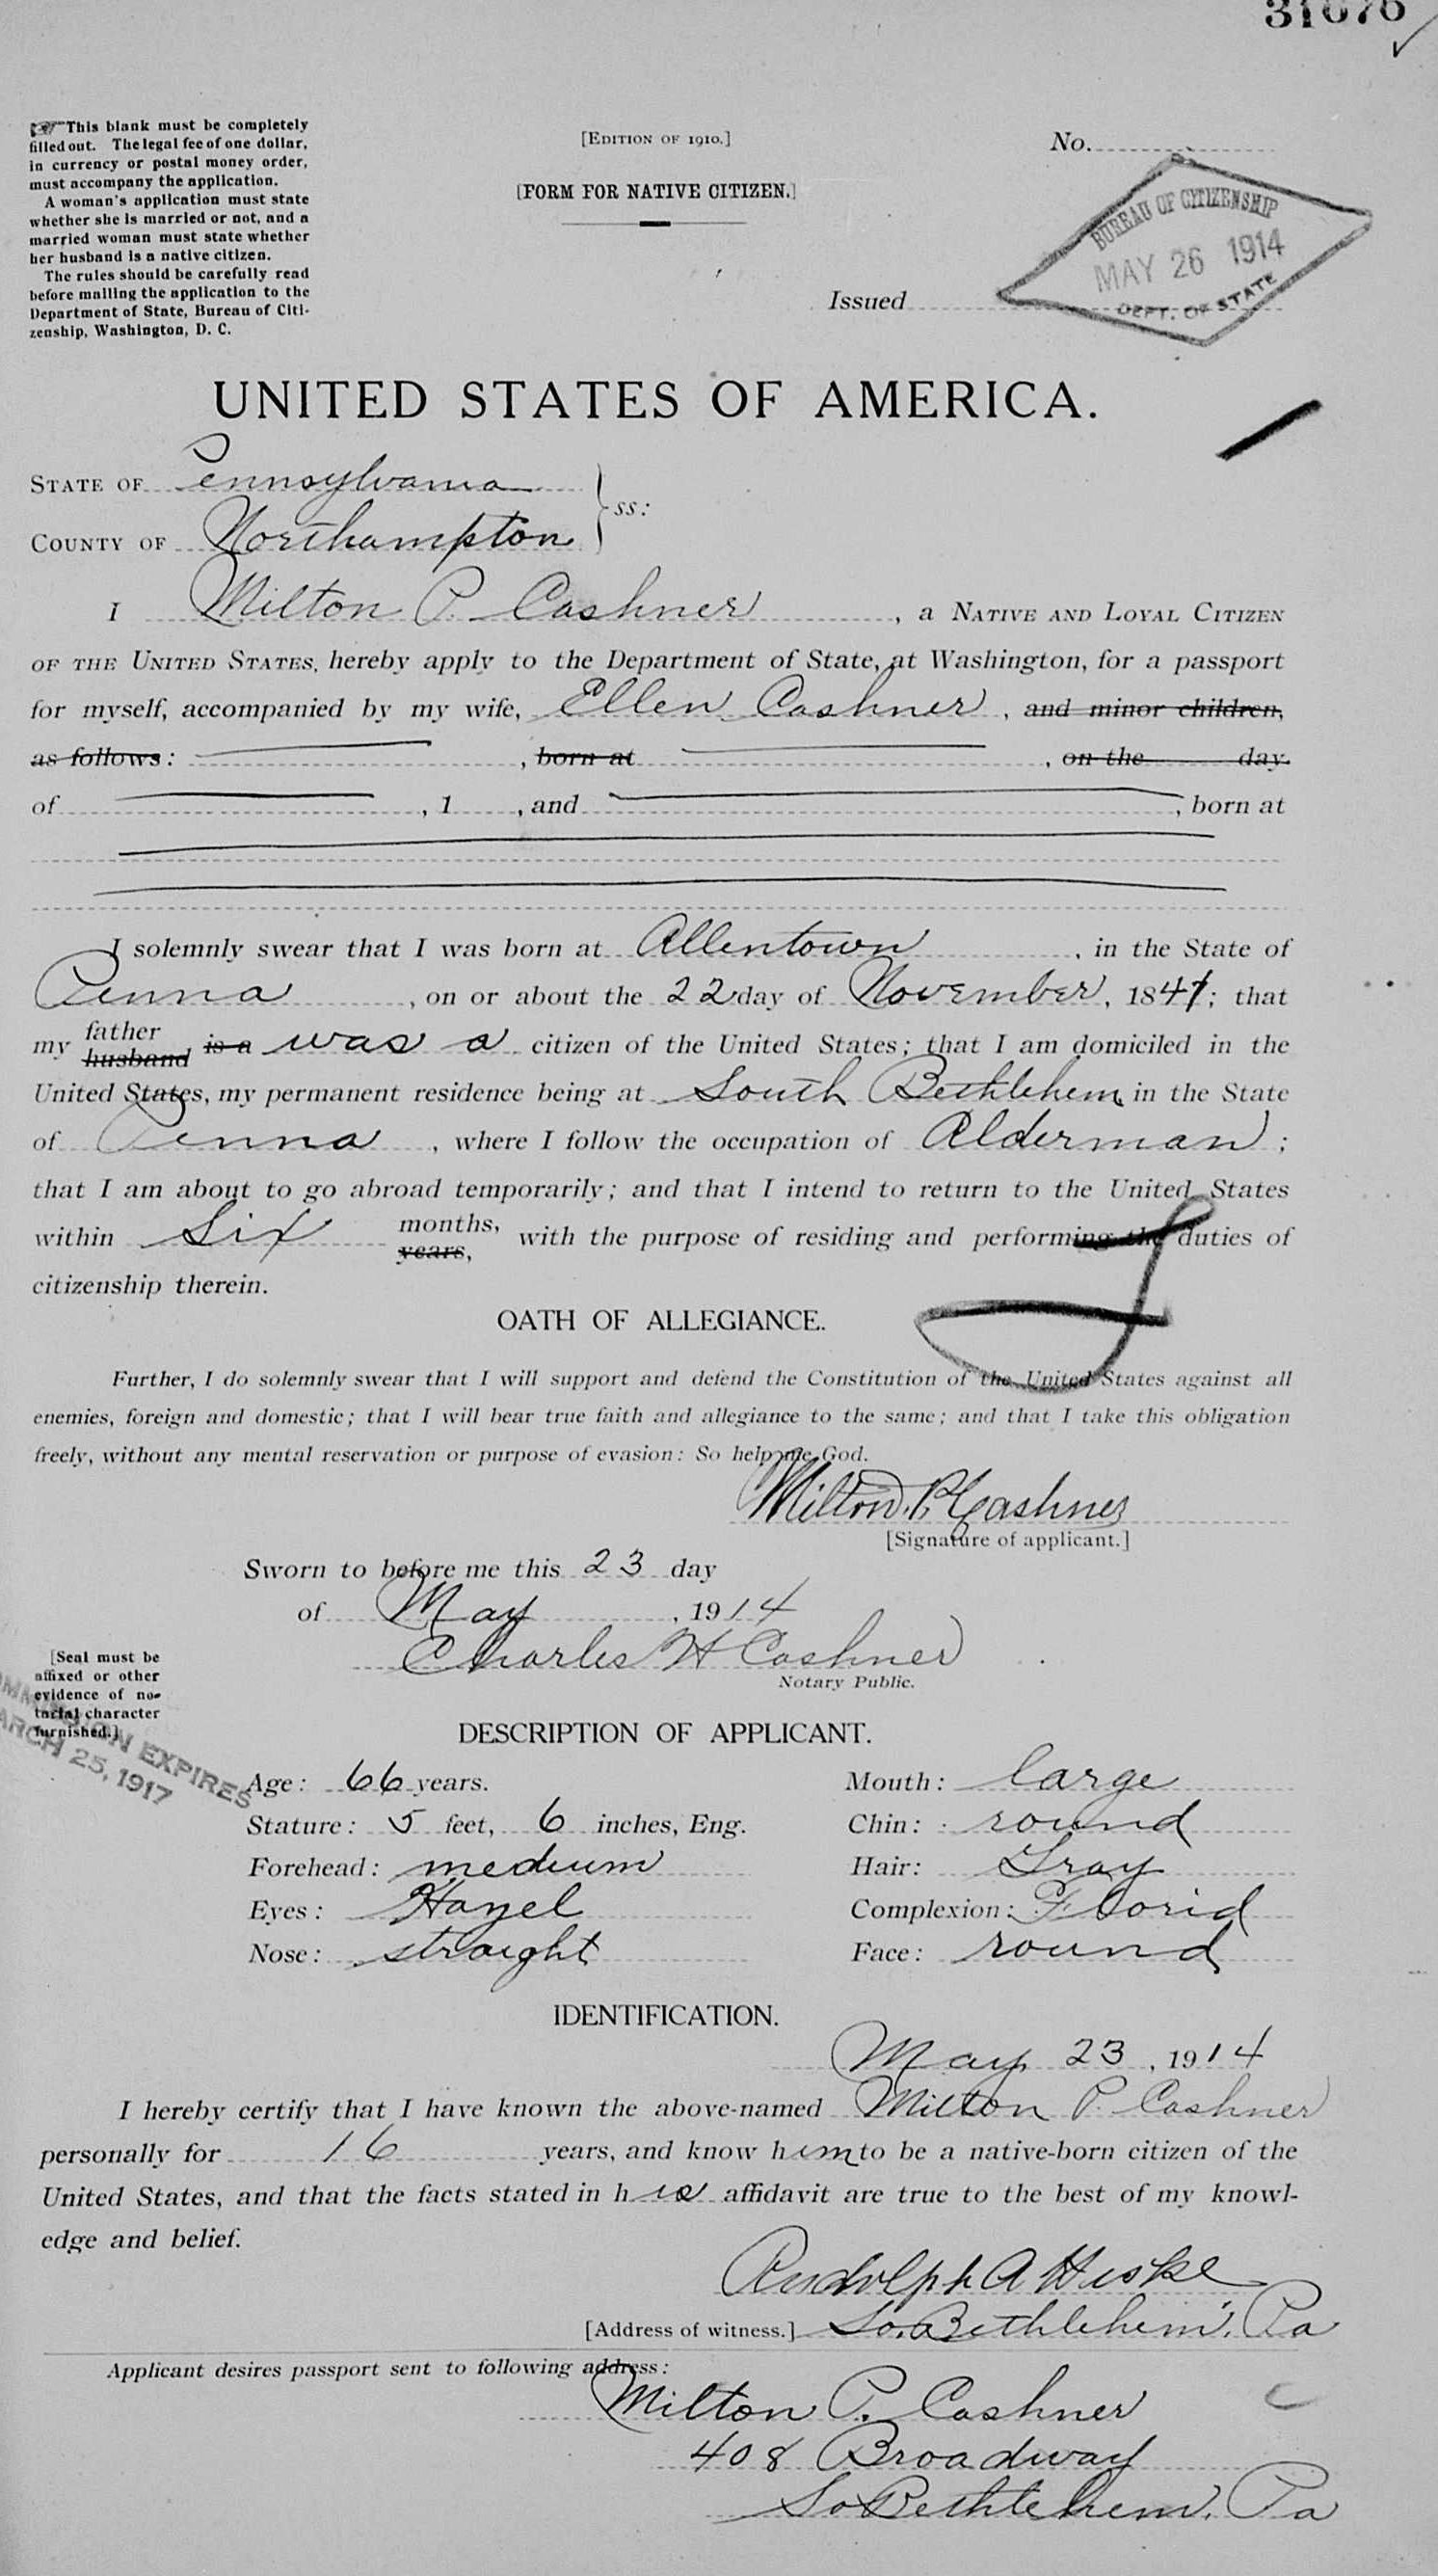 31076
☞ This blank must be completely
filled out. The legal fee of one dollar,
in currency or postal money order,
must accompany the application.
A woman's application must state
whether she is married or not, and a
married woman must state whether
her husband is a native citizen.
The rules should be carefully read
before mailing the application to the
Department of State, Bureau of Citi-
zenship, Washington, D. C.
[EDITION OF 1910.]
[FORM FOR NATIVE CITIZEN.]
No.
BUREAU OF CITIZENSHIP
MAY 26 1914
DEPT. OF STATE
Issued
UNITED STATES OF AMERICA.
STATE OF Pennsylvania
COUNTY OF Northampton } ss:
I Milton P. Cashner, a NATIVE AND LOYAL CITIZEN
OF THE UNITED STATES, hereby apply to the Department of State, at Washington, for a passport
for myself, accompanied by my wife, Ellen Cashner, and minor children,
as follows: , born at , on the day
of , 1 , and , born at
I solemnly swear that I was born at Allentown, in the State of
Penna, on or about the 22 day of November, 1847; that
my father husband is a was a citizen of the United States; that I am domiciled in the
United States, my permanent residence being at South Bethlehem in the State
of Penna, where I follow the occupation of Alderman;
that I am about to go abroad temporarily; and that I intend to return to the United States
within Six months, years, with the purpose of residing and performing the duties of
citizenship therein.
OATH OF ALLEGIANCE.
Further, I do solemnly swear that I will support and defend the Constitution of the United States against all
enemies, foreign and domestic; that I will bear true faith and allegiance to the same; and that I take this obligation
freely, without any mental reservation or purpose of evasion: So help me God.
Milton P. Cashner
[Signature of applicant.]
Sworn to before me this 23 day
of May, 1914
Charles H Cashner
Notary Public.
[Seal must be
affixed or other
evidence of no-
tarial character
furnished.]
COMMISSION EXPIRES
MARCH 25, 1917
DESCRIPTION OF APPLICANT.
Age: 66 years. Mouth: large
Stature: 5 feet, 6 inches, Eng. Chin: round
Forehead: medium Hair: Gray
Eyes: Hazel Complexion: Florid
Nose: straight Face: round
IDENTIFICATION.
May 23, 1914
I hereby certify that I have known the above-named Milton P. Cashner
personally for 16 years, and know him to be a native-born citizen of the
United States, and that the facts stated in his affidavit are true to the best of my knowl-
edge and belief.
Rudolph A
[Address of witness.] So. Bethlehem, Pa
Applicant desires passport sent to following address:
Milton P. Cashner
408 Broadway
So Bethlehem, Pa